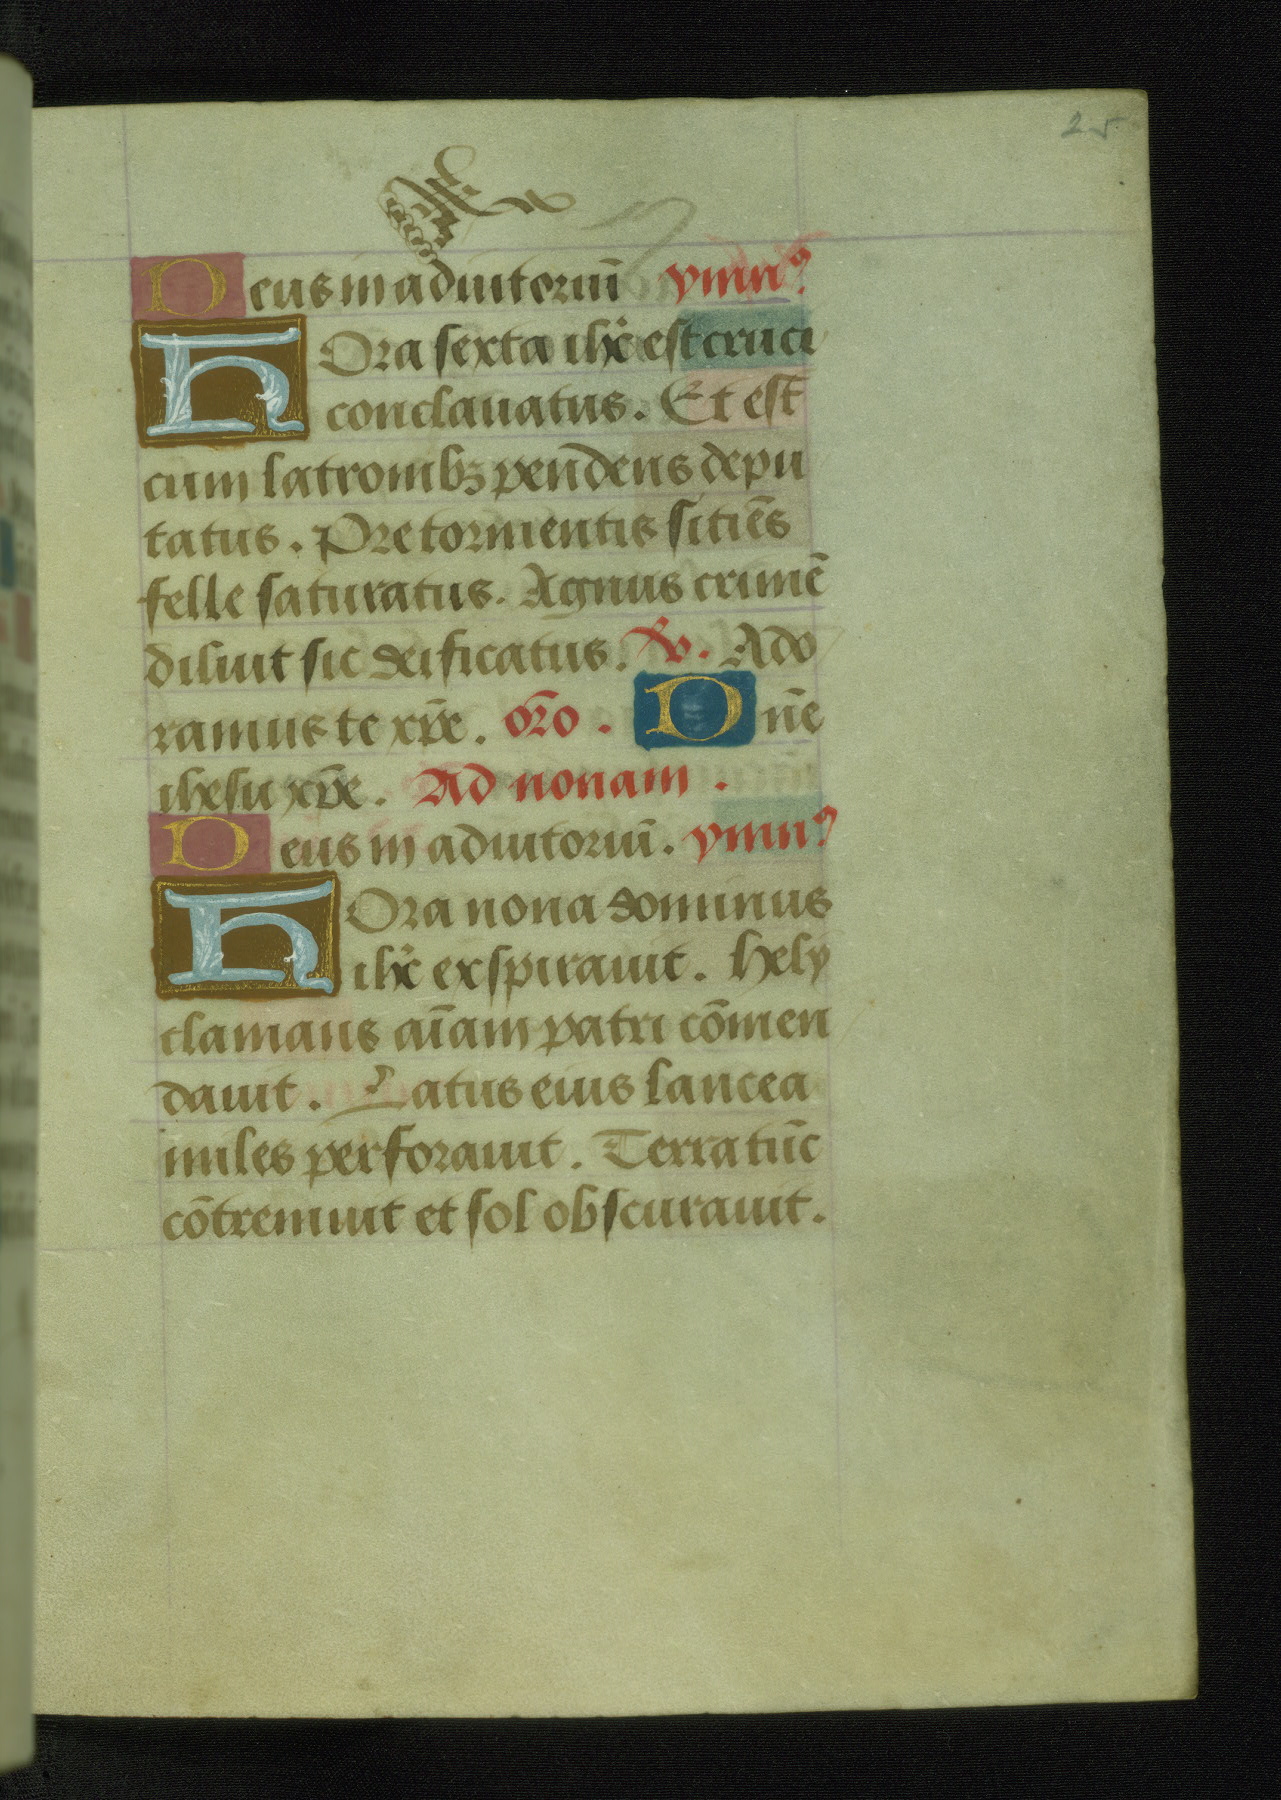 25
Deus in adiutoriū ymnꝰ
HOra sexta ihc̄ est cruci
conclauatus. Et est
cum latronibꝫ pendens depu
tatus. Pre tormentis sitiēs
felle saturatus. Agnus crimē
diluit sic deificatus. ℣. Ado
ramus te xp̄e. oro͂. Dn̄e
ihesu xp̄e. Ad nonam.
Deus in adiutoriū. ymnꝰ
HOra nona dominus
ihc̄ exspirauit. Hely
clamans aīam patri cōmen
dauit. Latus eius lancea
miles perforauit. Terra tūc
cōtremuit et sol obscurauit.